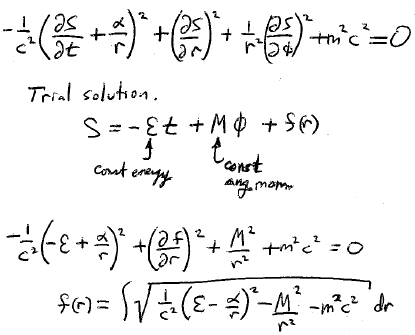 -1/c² (∂S/∂t + α/r)² + (∂S/∂r)² + 1/r² (∂S/∂ϕ)² + m²c² = 0
Trial solution.
S = -εt + Mϕ + f(r)
const energy
const ang. mom.
-1/c² (-ε + α/r)² + (∂f/∂r)² + M²/r² + m²c² = 0
f(r) = ∫ √(1/c² (ε - α/r)² - M²/r² - m²c²) dr